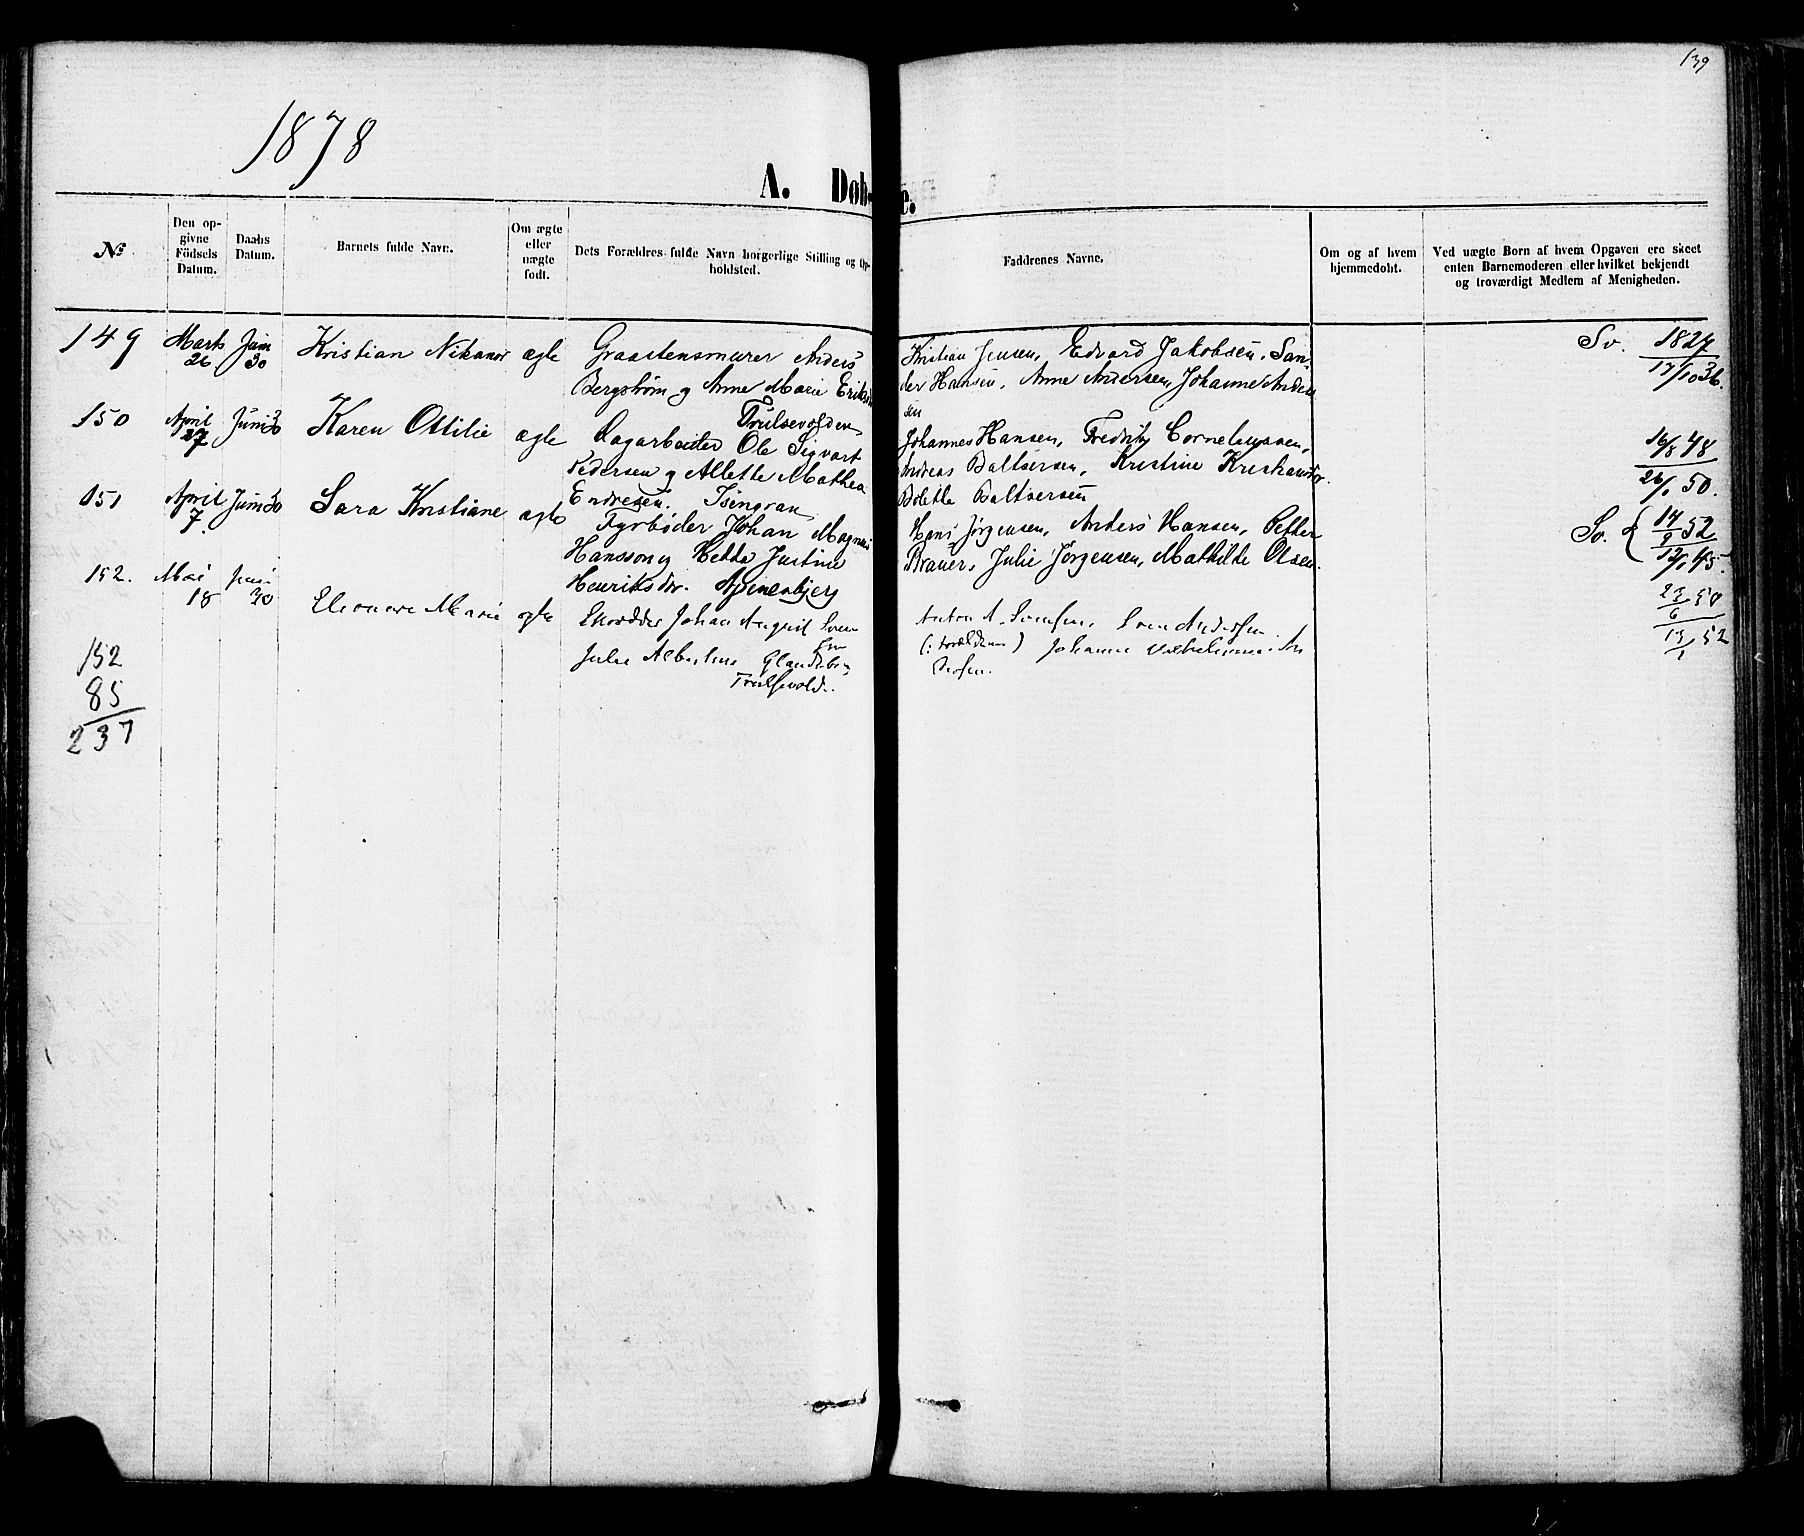 139
1878
A. Døb-
e.
№
Den op-
givne
Födsels
Datum.
Daabs
Datum.
Barnets fulde Navn.
Om ægte
eller
uægte
født.
Dets Forældres fulde Navn borgerlige Stilling og Op-
holdsted.
Faddrenes Navne.
Om og af hvem
hjemmedøbt.
Ved uægte Børn af hvem Opgaven ere skeet
enten Barnemoderen eller hvilket bekjendt
og troværdigt Medlem af Menigheden.
149 Marts 26 Juni 30 Kristian Nikanor ægte Graastensmurer Anders
Bergstrøm og Anne Marie Eriks
Trulsevolden
Kristian Jensen, Edvard Jakobsen, San-
der Hansen, Anne Andersen, Johanne Ander
sen
Sv. 1827
17/10 36.
150 April 27 Juni 30 Karen Ottilie ægte Dagarbeider Ole Sigvart
Pedersen og Allette Mathea
Endresen. Isingran
Johannes Hansen, Fredrik Corneliussen,
Andreas Baltsersen, Kristine Kristiansdr.
Bolette Baltsersen
16/8 48
26/1 50.
151 April 7. Juni 30 Sara Kristiane ægte Fyrbøder Johan Magnus
Hansson og Hedda Justine
Henriksdr. Apenesbjerg
Hans Jørgensen, Anders Hansen, Petter
Brauer, Julie Jørgensen, Mathilde Olsen.
Sv. { 14/9 52
12/1 45.
152. Mai 18 Juni 30 Eleonore Marie ægte Skrædder Johan August Sven
Julie Albertine
Trulsevold.
Anton A. Svensen, Sven Andersen
(: Forældrene) Johanne Vilhelmine An
dersen.
23/6 50
13/1 52
152
85
237